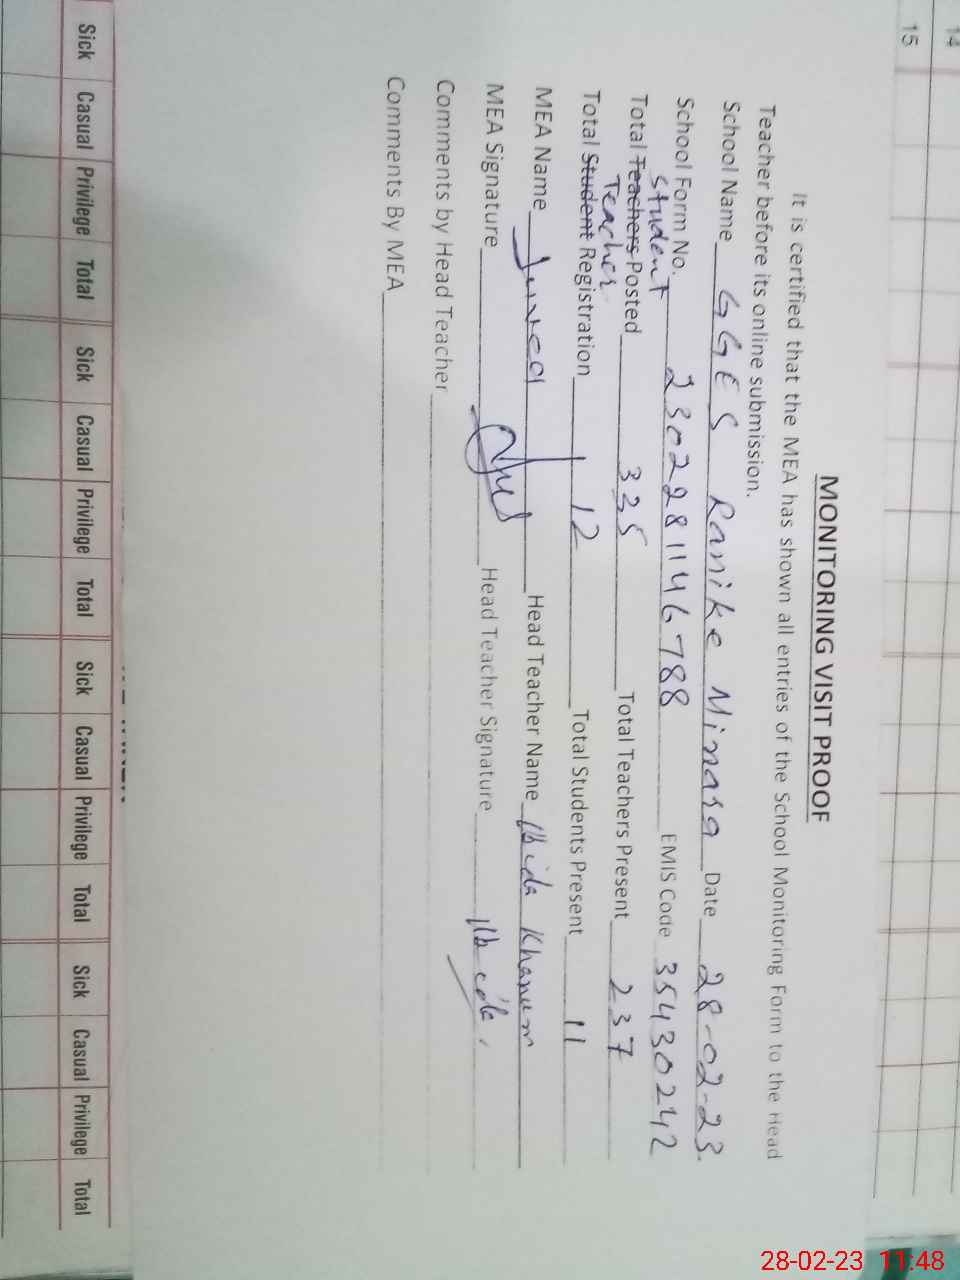 14
15
MONITORING VISIT PROOF
It is certified that the MEA has shown all entries of the School Monitoring Form to the Head
Teacher before its online submission.
School Name GGES Ranike Minara Date 28-02-23.
School Form No. 2302281146788 EMIS Code 35430242
Student
Total Teachers Posted 335 Total Teachers Present 237
Teacher
Total Student Registration 12 Total Students Present 11
MEA Name Head Teacher Name Abida Khanum
MEA Signature Head Teacher Signature Abida
Comments by Head Teacher
Comments By MEA
Sick Casual Privilege Total Sick Casual Privilege Total Sick Casual Privilege Total Sick Casual Privilege Total
28-02-23 11:48